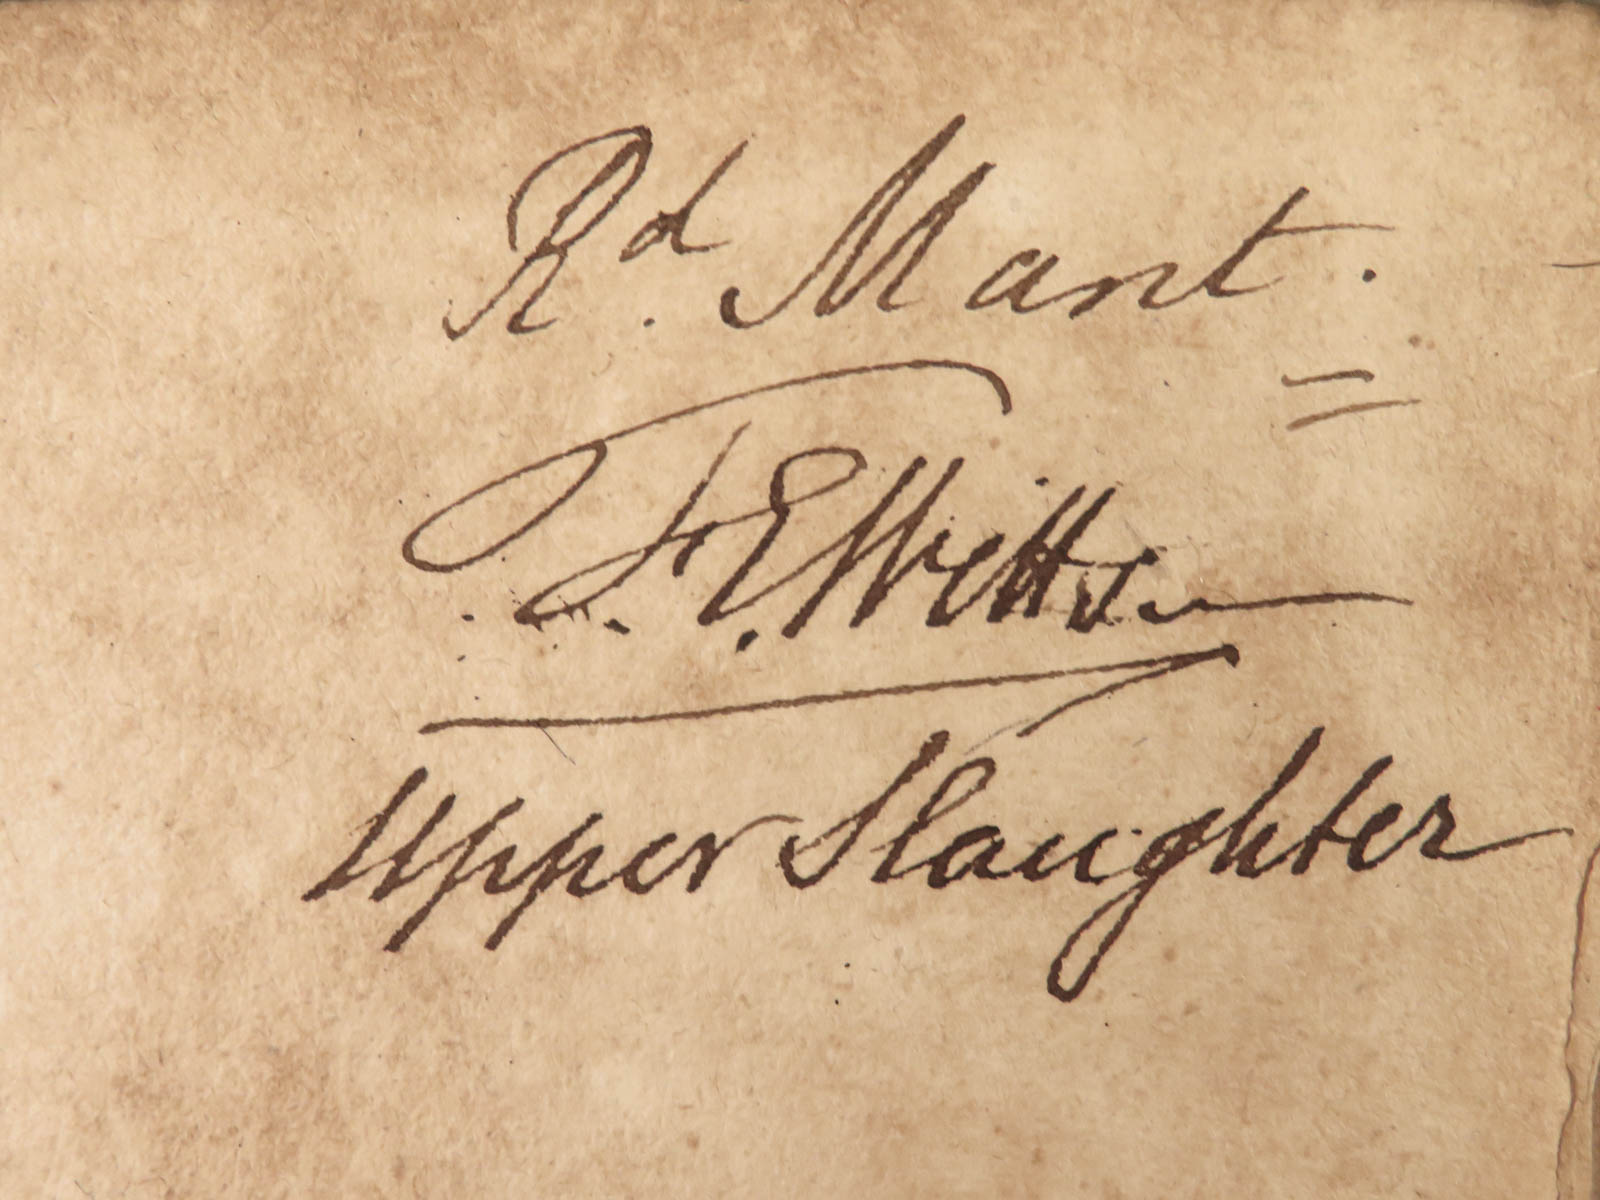 Rd. Mant.
F. E. Witts
Upper Slaughter